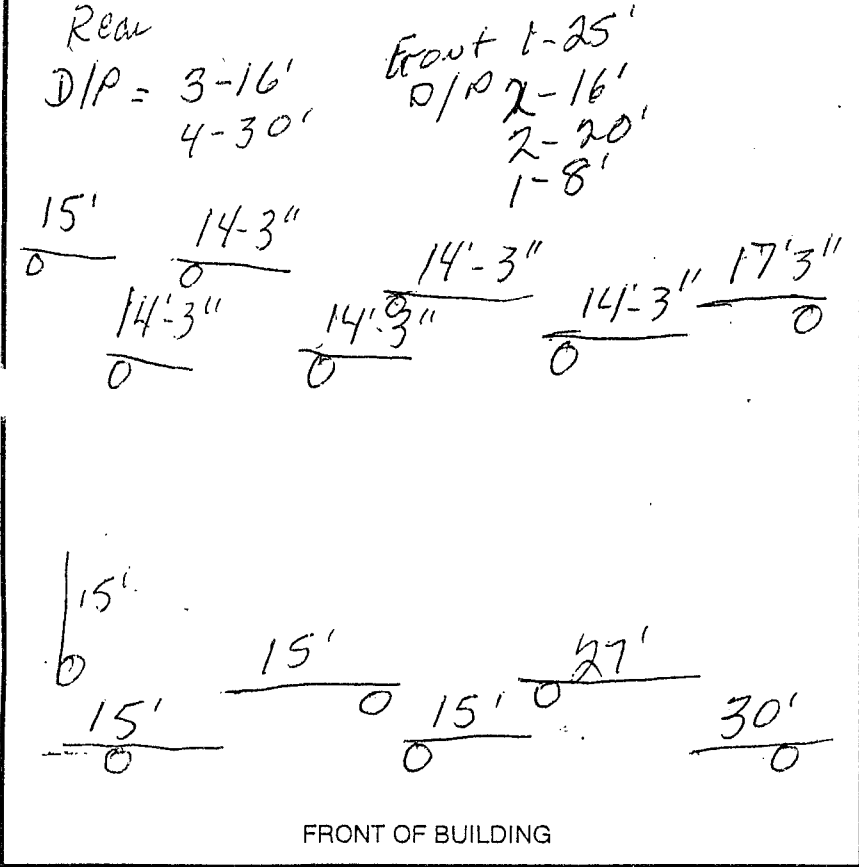 Rear
D/P = 3-16'
4-30'
Front 1-25'
D/P 2-16'
2-20'
1-8'
15' 14-3" 14'-3" 17'3"
14'-3" 14'-3" 14'-3"
15'
15' 27'
15' 15' 30'
FRONT OF BUILDING